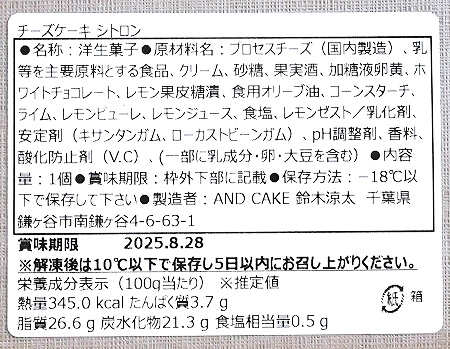 チーズケーキ シトロン
●名称：洋生菓子●原材料名：プロセスチーズ（国内製造）、乳
等を主要原料とする食品、クリーム、砂糖、果実酒、加糖液卵黄、ホ
ワイトチョコレート、レモン果皮糖漬、食用オリーブ油、コーンスターチ、
ライム、レモンピューレ、レモンジュース、食塩、レモンゼスト／乳化剤、
安定剤（キサンタンガム、ローカストビーンガム）、pH調整剤、香料、
酸化防止剤（V.C）、(一部に乳成分・卵・大豆を含む）●内容
量：1個●賞味期限：枠外下部に記載●保存方法：−18℃以
下で保存して下さい●製造者：AND CAKE 鈴木涼太　千葉県
鎌ヶ谷市南鎌ヶ谷4-6-63-1
賞味期限　2025.8.28
※解凍後は10℃以下で保存し5日以内にお召し上がりください。
栄養成分表示（100g当たり）※推定値
熱量345.0 kcal たんぱく質3.7 g
脂質26.6 g 炭水化物21.3 g 食塩相当量0.5 g
紙 箱